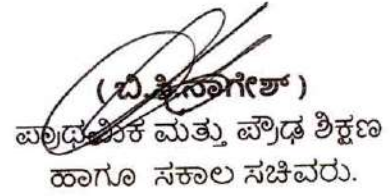 ( ಬಿ.ಸಿ.ನಾಗೇಶ್ )
ಪ್ರಾಥಮಿಕ ಮತ್ತು ಪ್ರೌಢ ಶಿಕ್ಷಣ
ಹಾಗೂ ಸಕಾಲ ಸಚಿವರು.